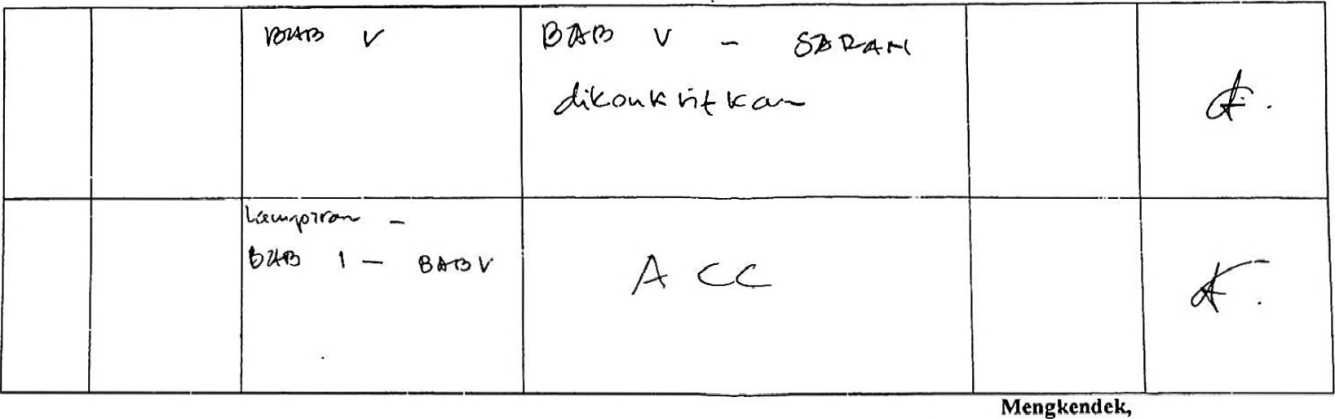 BAB V
BAB V - SARAN
dikonkritkan
Lampiran -
BAB 1 - BAB V
ACC
Mengkendek,